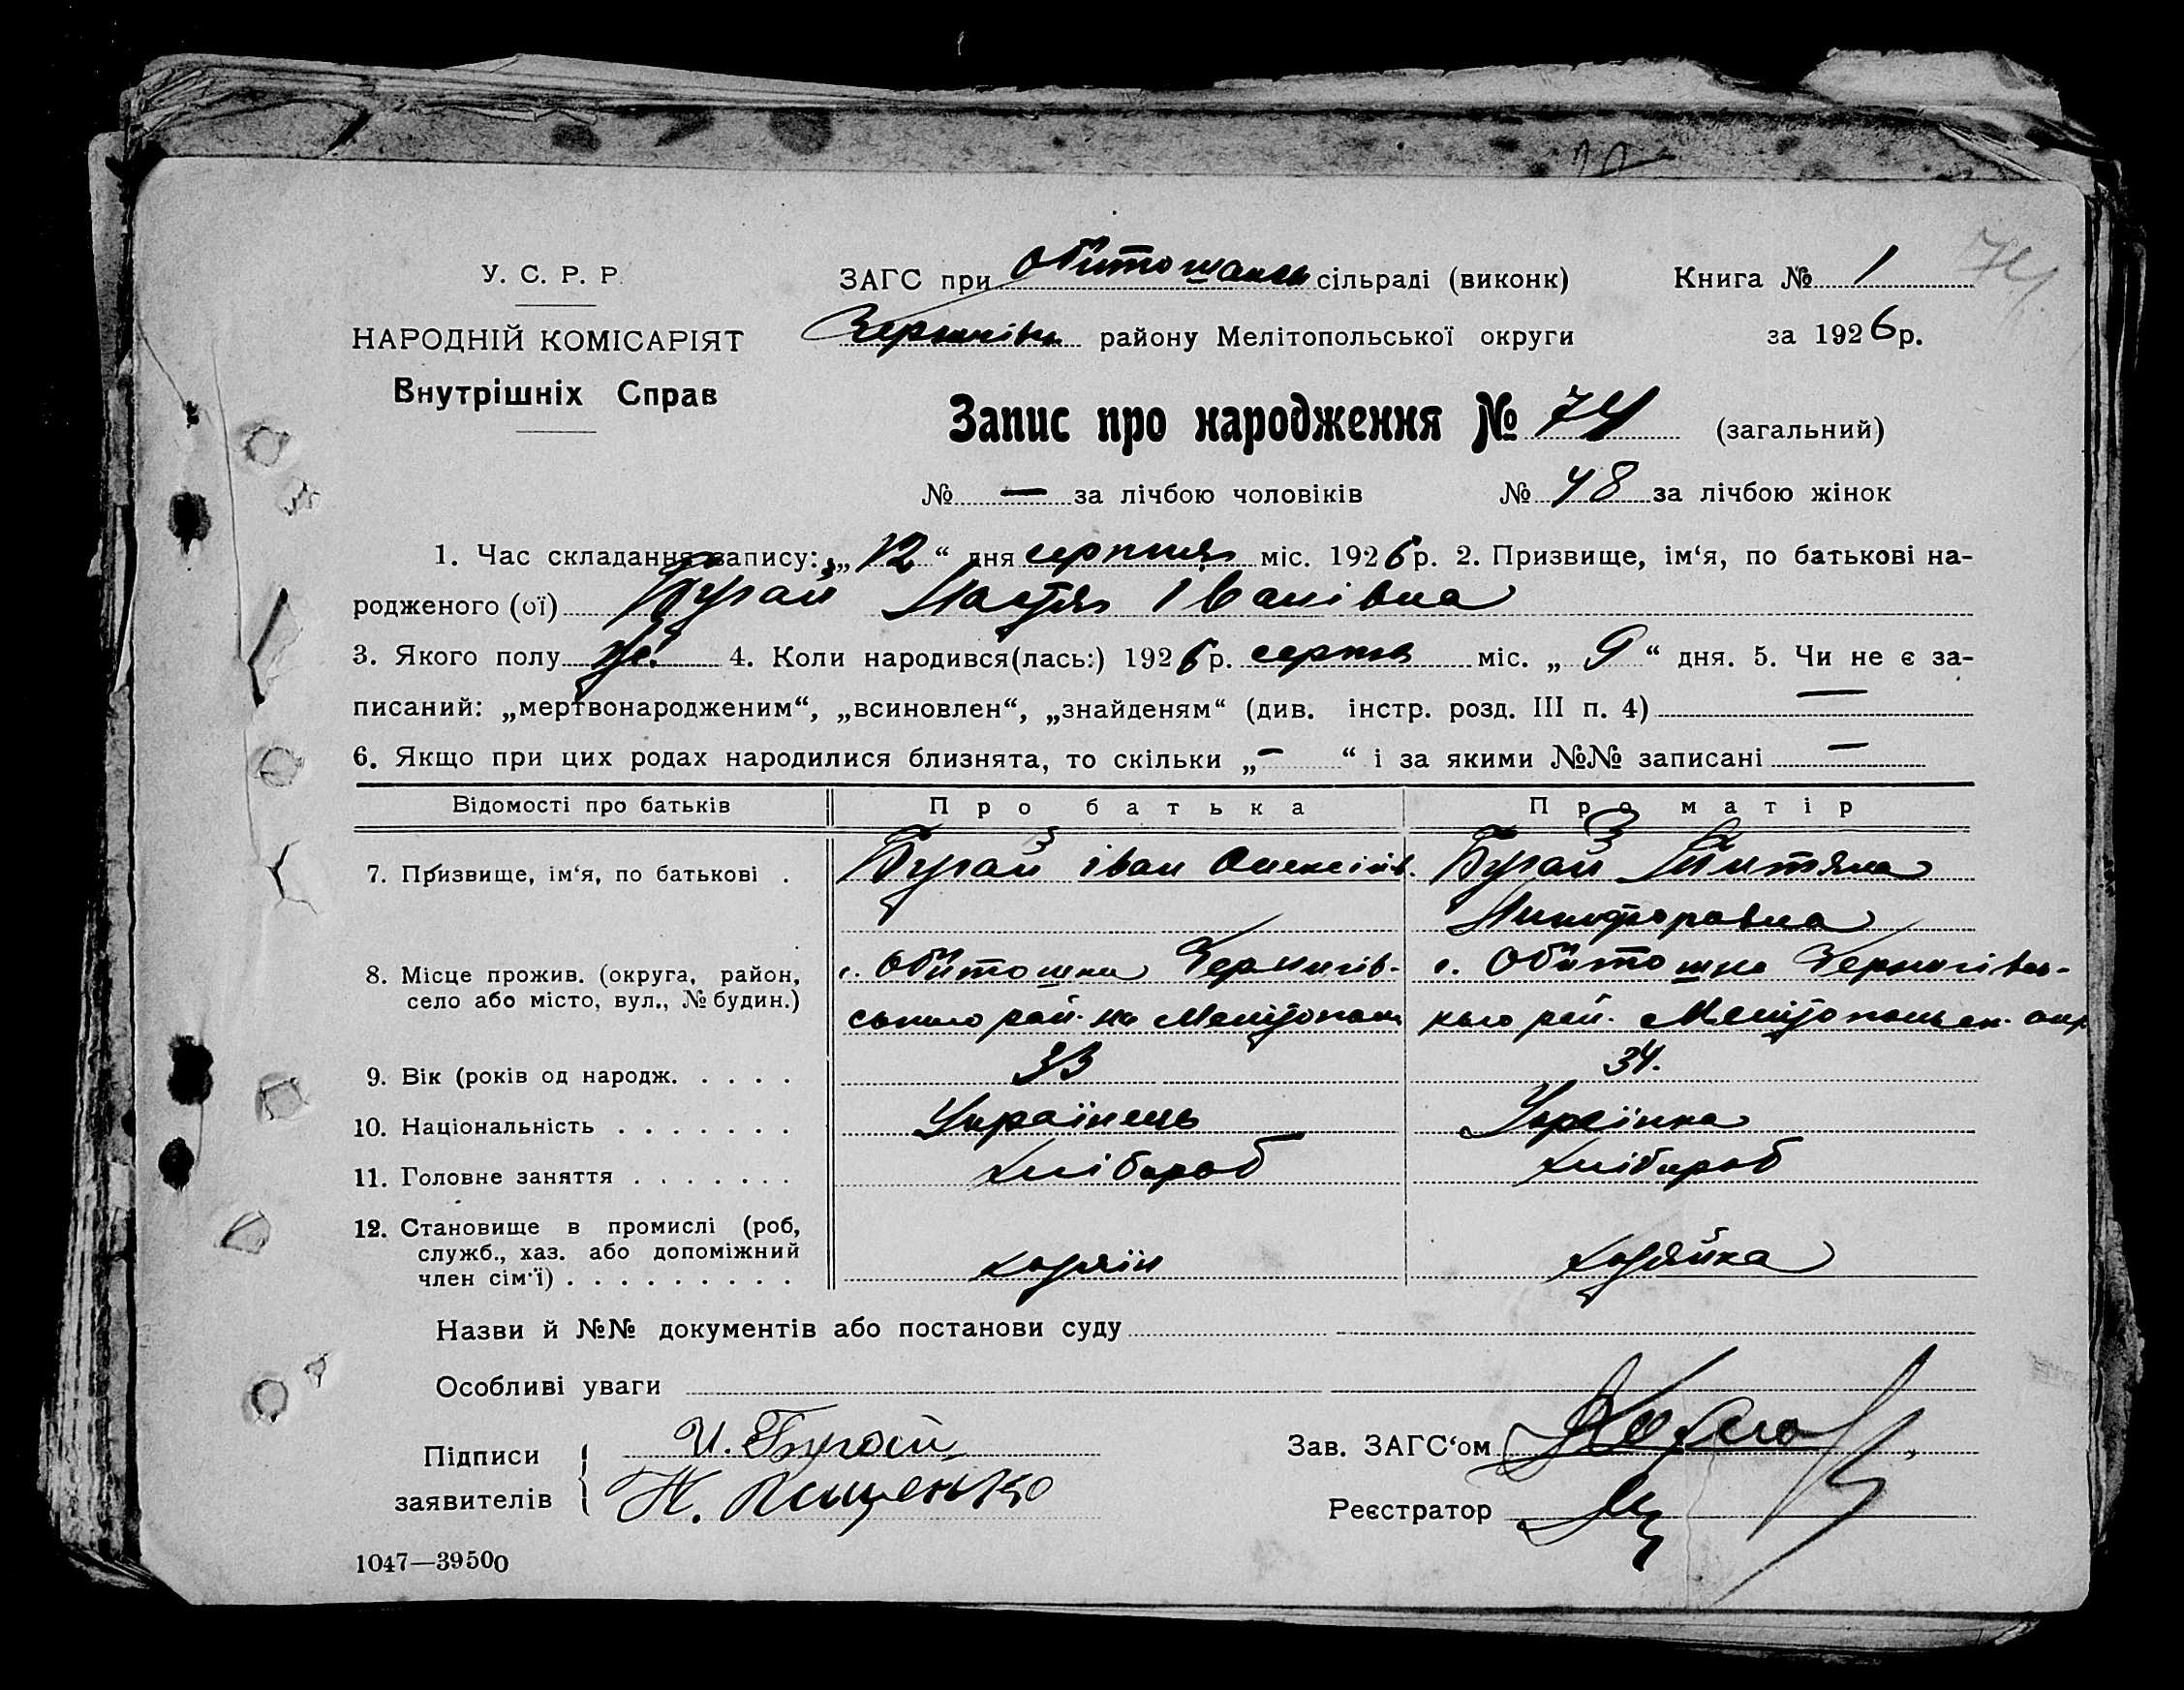 У. С. Р. Р.
НАРОДНІЙ КОМІСАРІЯТ
Внутрішніх Справ
ЗАГС при сільраді (виконк) Книга № 1
району Мелітопольської округи за 1926 р.
74
Запис про народження № 74 (загальний)
№ — за лічбою чоловіків № 48 за лічбою жінок
1. Час складання запису: „12“ дня серпня міс. 1926 р. 2. Призвище, ім‘я, по батькові на-
родженого (ої) Бугай Настя Іванівна
3. Якого полу жі. 4. Коли народився(лась:) 1926 р. серпня міс. „9“ дня. 5. Чи не є за-
писаний: „мертвонародженим“, „всиновлен“, „знайденям“ (див. інстр. розд. III п. 4) —
6. Якщо при цих родах народилися близнята, то скільки „—“ і за якими №№ записані —
Відомості про батьків Про батька Про матір
7. Призвище, ім‘я, по батькові . Бугай Іван Олексіїв. Бугай
8. Місце прожив. (округа, район, с. Обиточна Чернигів- с. Обиточна Чернигівсь-
село або місто, вул., № будин.) ського рай. на Мелітопол кого рай. Мелітопольськ. окр
9. Вік (років од народж. . . . . 33 34.
10. Національність . . . . . . . Українець Українка
11. Головне заняття . . . . . . . Хлібороб Хлібороб
12. Становище в промислі (роб,
служб., хаз. або допоміжний
член сім‘ї) . . . . . . . . . хозяїн хозяйка
Назви й №№ документів або постанови суду
Особливі уваги
Підписи И. Бугай Зав. ЗАГС‘ом
заявителів Н. Пащенько Реєстратор
1047—39500